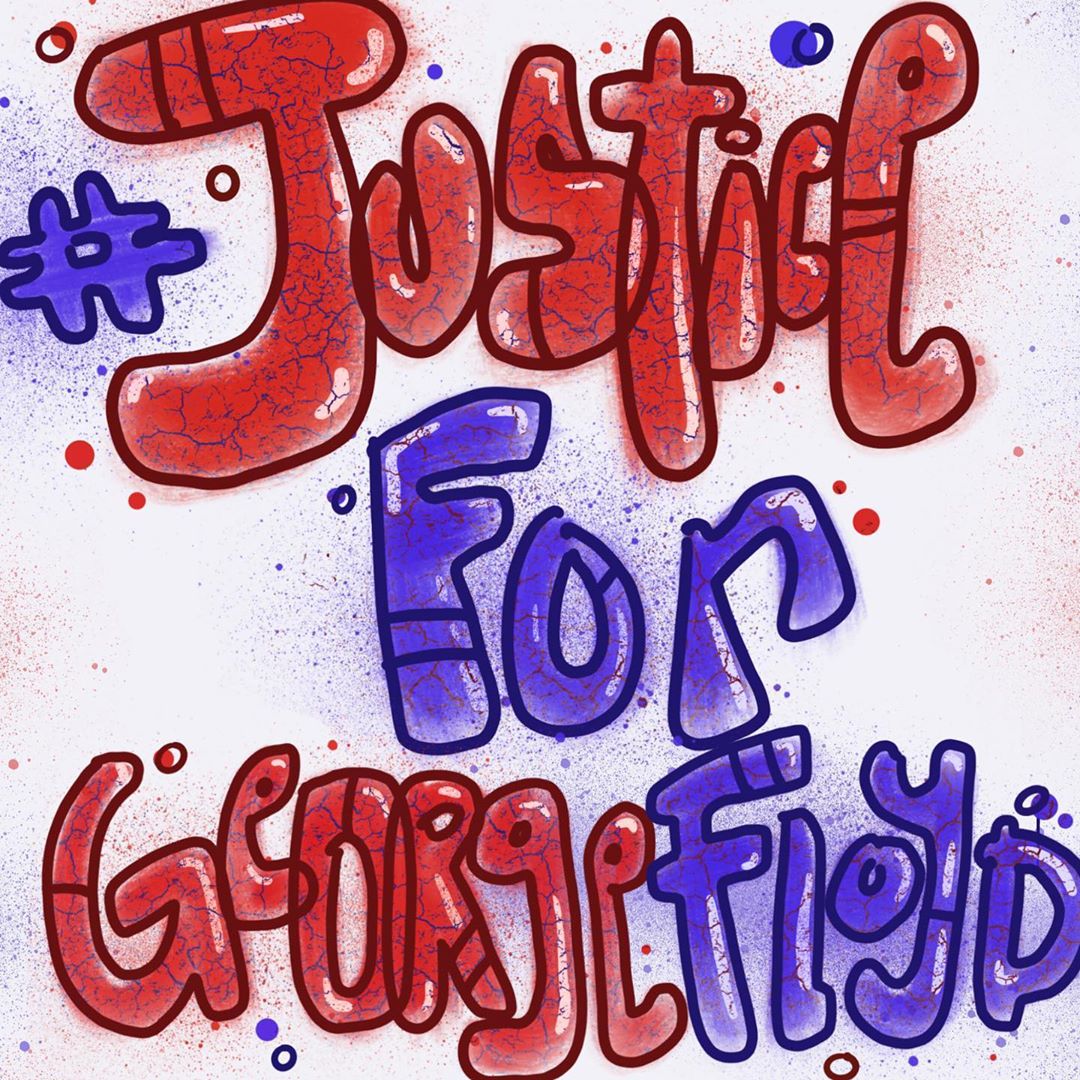 #Justice
For
GeORgeFloyD